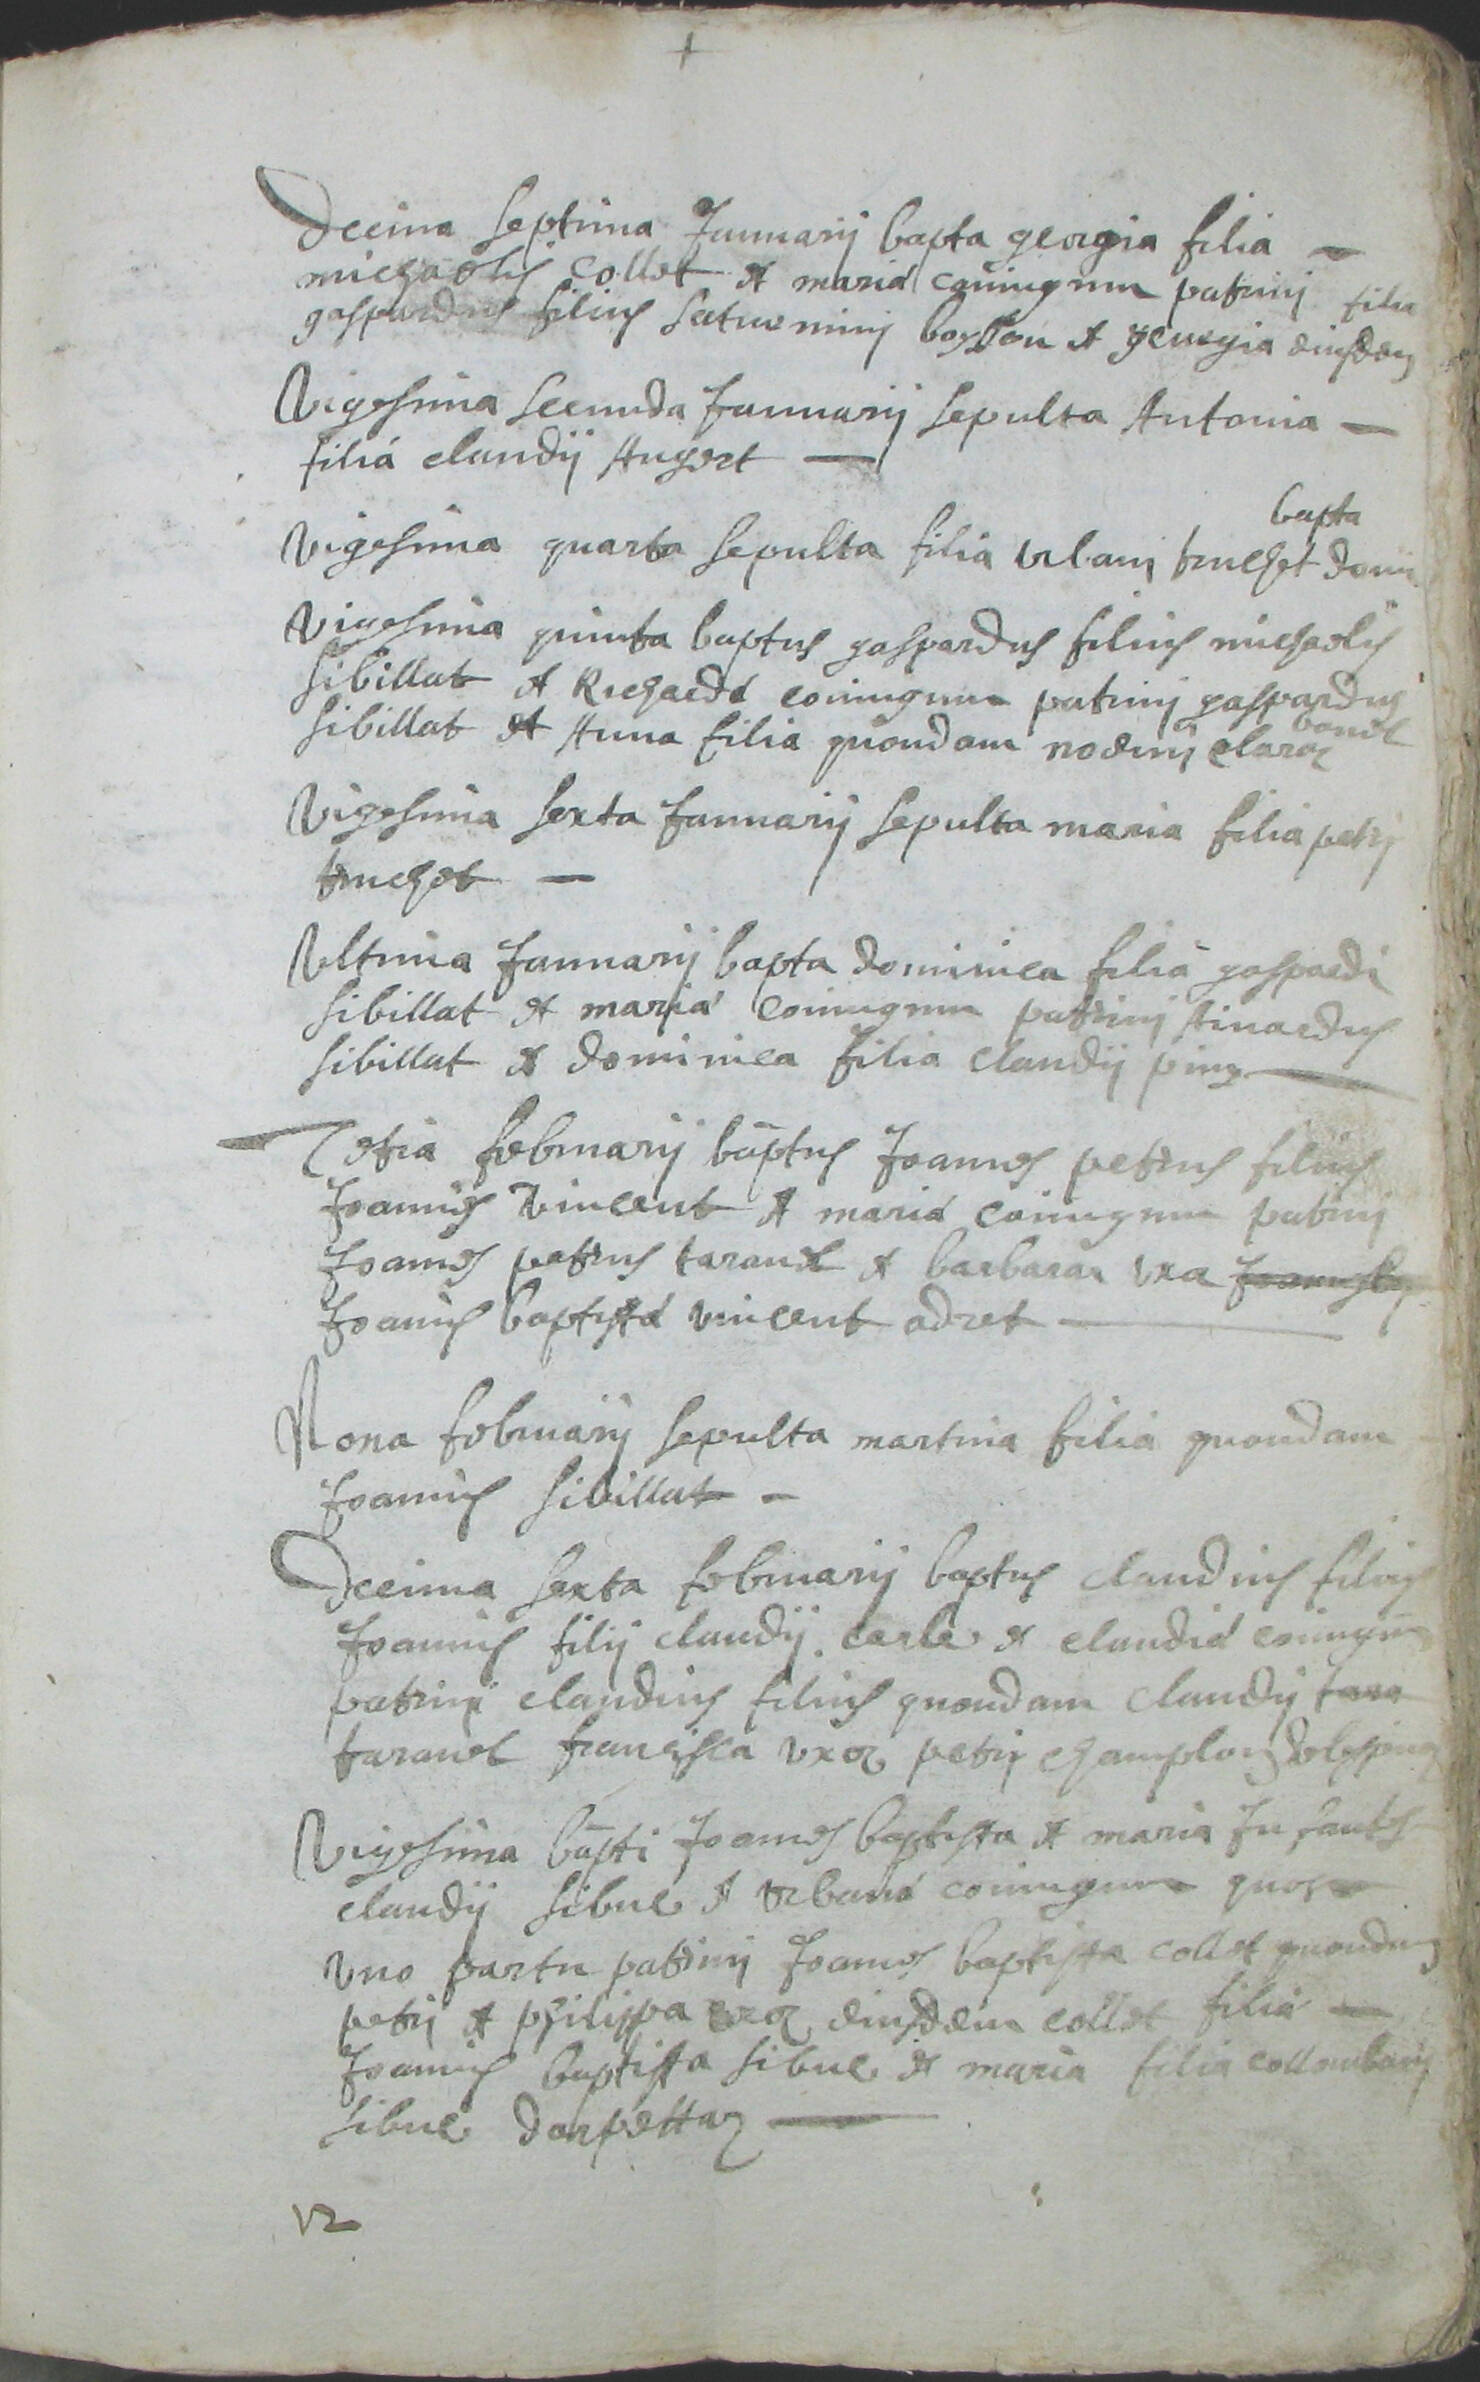 +
Decima septima Januarij bapta georgia filia
michaelis Collet et mariæ coniugum patrinj
gaspardus filius saturninj bosson et georgia eiusdem filia
Vigesima secunda Januarij sepulta Antonia
filia claudij Augert
Vigesima quarta sepulta filia urbanj truchet bapta domi
Vigesima quinta baptus gaspardus filius michaelis
sibillat et Richardæ coniugum patrinj gaspardus
sibillat et Anna filia quondam claraz
Vigesima sexta Januarij sepulta maria filia petrj
truchet
Ultima Januarij bapta dominica filia gaspardi
sibillat et mariæ coniugum patrinj Ainardus
sibillat et dominica filia claudij
Tertia februarij baptus Joannes petrus filius
Joannis Vincent et mariæ coniugum patrinj
Joannes petrus taravel et barbara uxa
Joannis baptistæ vincent adret
Nona februarij sepulta martina filia quondam
Joannis sibillat
Decima sexta februarij baptus claudius filius
Joannis filij claudij carle et claudiæ coniugum
patrinj claudius filius quondam claudij tara
taravel francisca uxor petrij champlong
Vigesima bapti Joannes baptista et maria Infantes
claudij sibue et urbanæ coniugum
uno partu patrinj Joannes baptista collet quondam
petrj et philippa uxor eiusdem collet filia
Joannis baptista sibue et maria filia collombanj
sibue